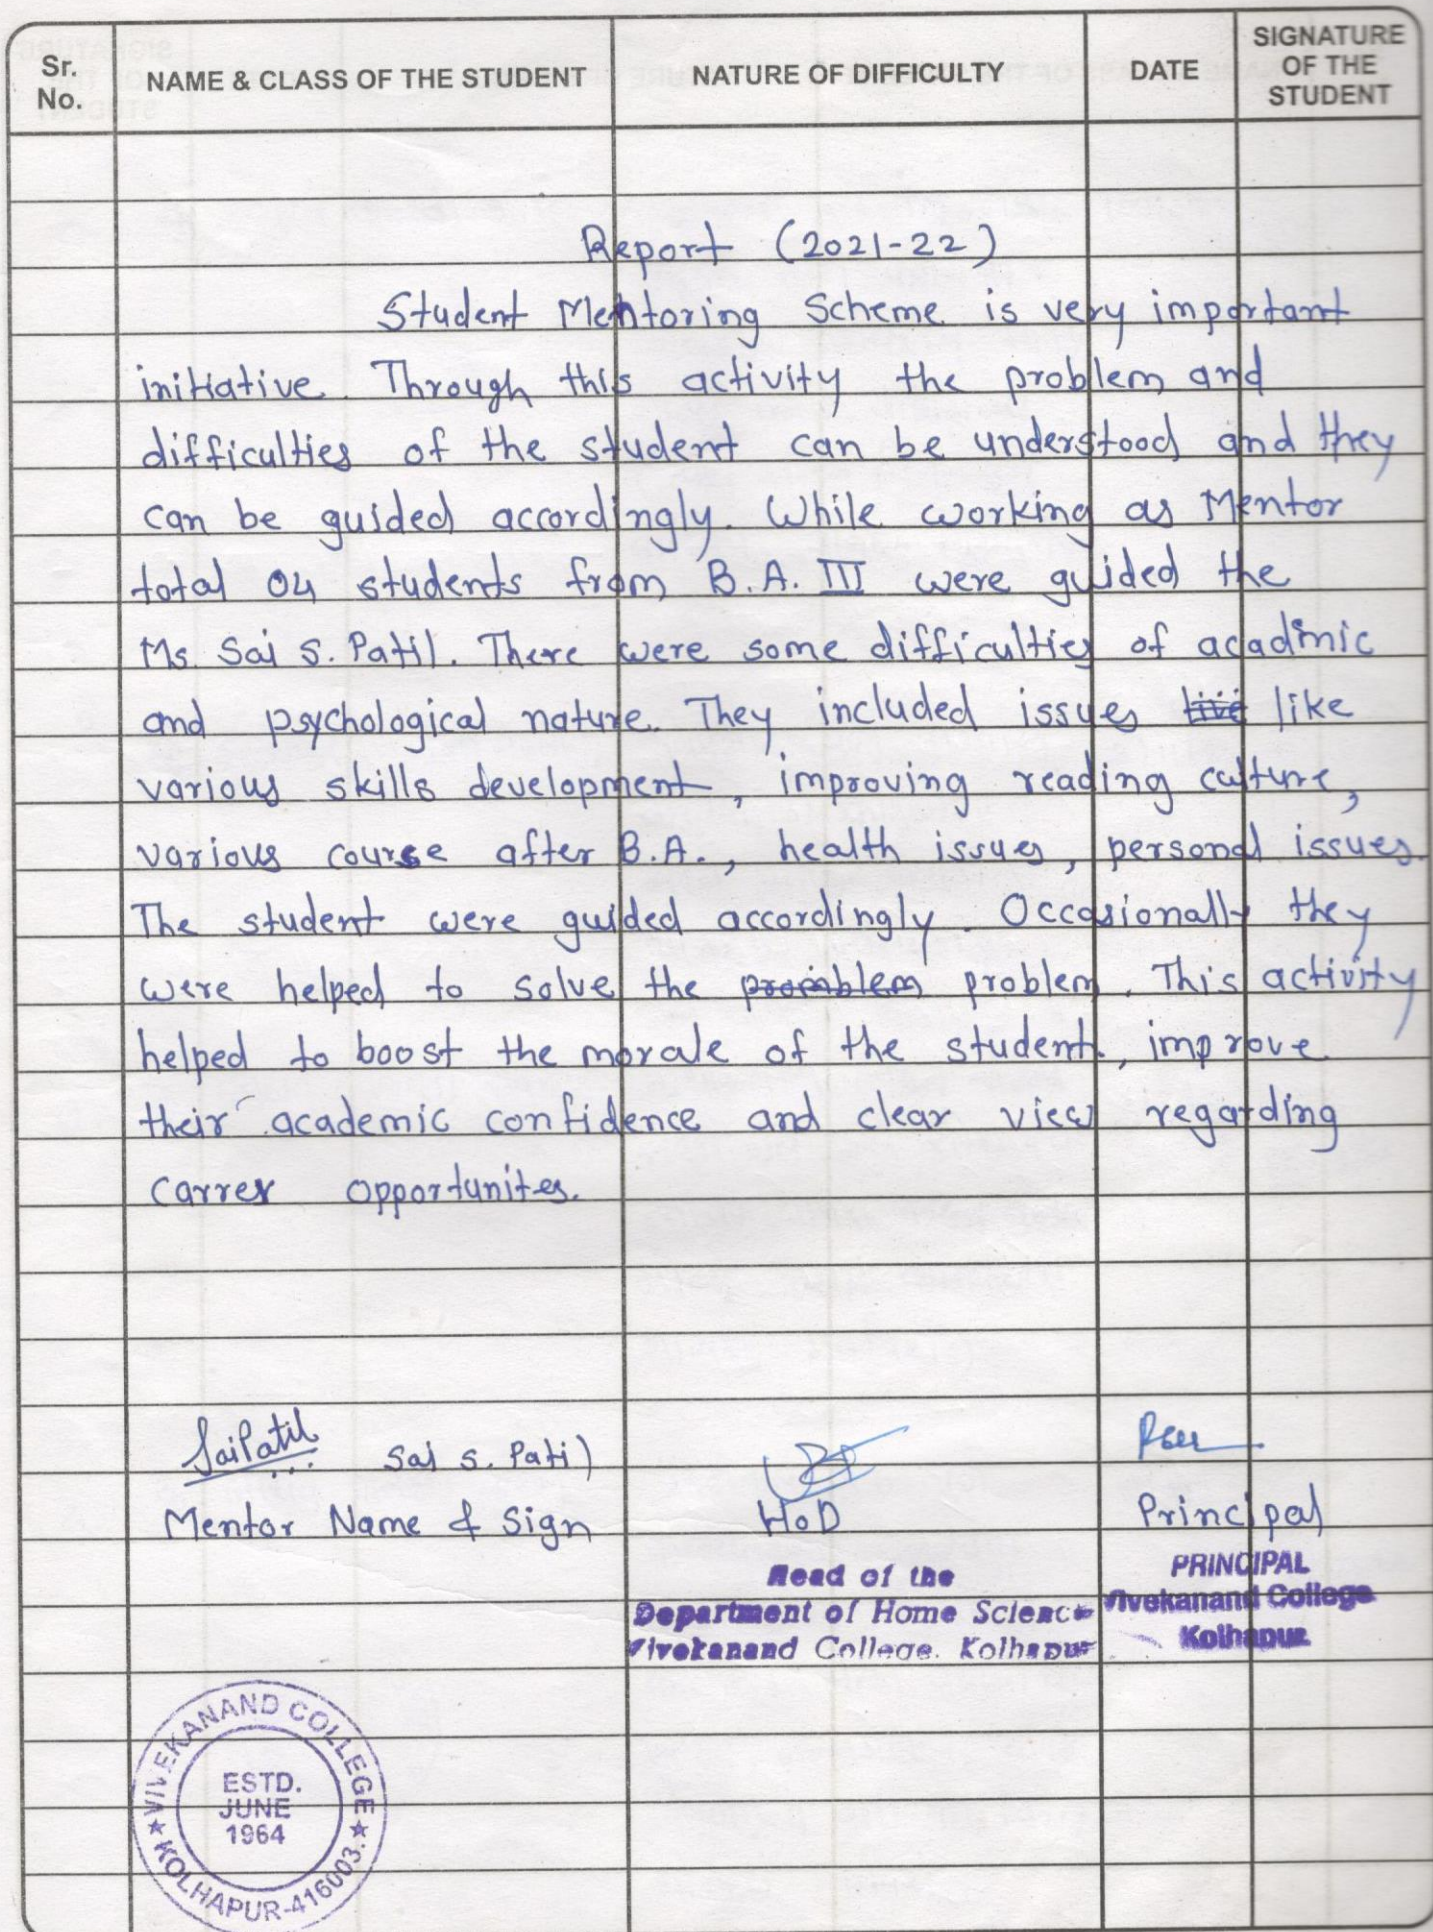 Sr. No.
NAME & CLASS OF THE STUDENT
NATURE OF DIFFICULTY
DATE
SIGNATURE OF THE STUDENT
Report (2021-22)
Student Mentoring Scheme is very important
initiative. Through this activity the problem and
difficulties of the student can be understood and they
can be guided accordingly. While working as Mentor
total 04 students from B.A. III were guided the
Ms. Sai S. Patil. There were some difficulties of acadmic
and psychological nature. They included issues like
various skills development, improving reading culture,
various course after B.A., health issues, personal issues.
The student were guided accordingly. Occasionally they
were helped to solve the problem. This activity
helped to boost the morale of the student, improve
their academic confidence and clear view regarding
carrer opportunites.
SaiPatil Sai S. Patil
Mentor Name & Sign
HoD
Principal
Head of the
Department of Home Science
Vivekanand College, Kolhapur
PRINCIPAL
Vivekanand College
Kolhapur
VIVEKANAND COLLEGE
ESTD.
JUNE
1964
KOLHAPUR-416003.